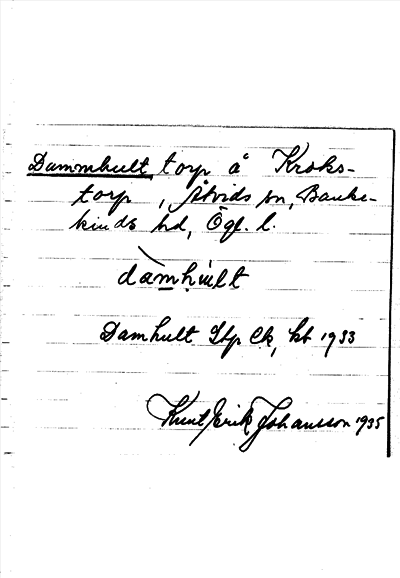 Dammhult, torp å Kroks-
torp, Åtvids sn, Banke-
kinds hd, Ögl. l.
damhult
Damhult Ltp Ek, kb 1933
Knut Erik Johansson 1935